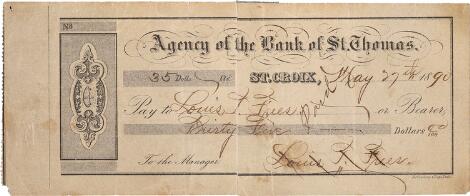 No
Agency of the Bank of St. Thomas.
35 Dolls
ST. CROIX, May 27th 1890
Pay to Louis F. Fries or Bearer,
Thirty five Dollars
To the Manager Louis F. Fries.